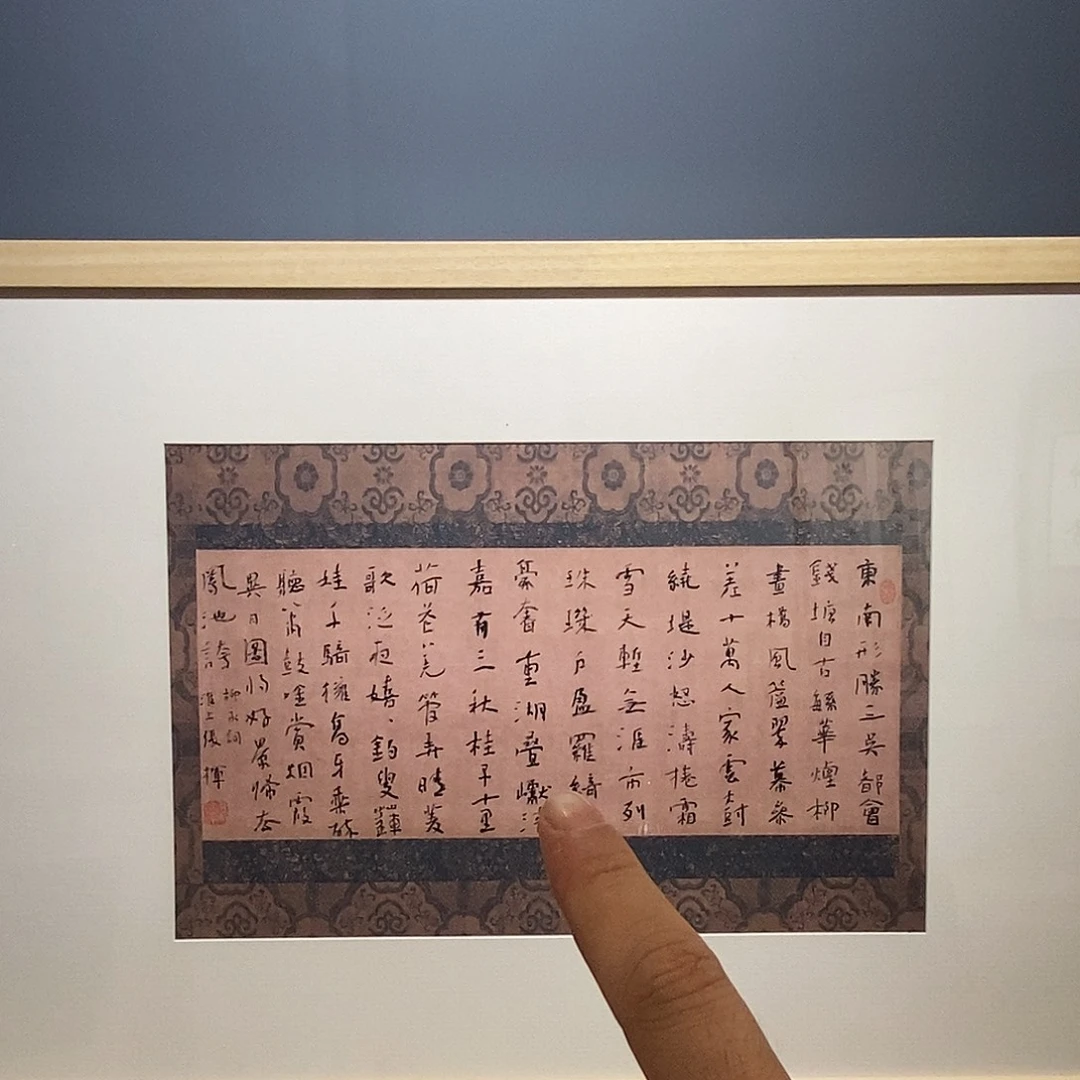 東南形勝三吳都會
錢塘自古緐華煙柳
畫橋風簾翠幕參
差十萬人家雲樹
繞堤沙怒濤捲霜
雪天塹無涯市列
珠璣戶盈羅綺
豪奢重湖疊巘清
嘉有三秋桂子十里
荷花羌管弄晴菱
歌泛夜嬉、釣叟蓮
娃千騎擁高牙乘醉
聽簫鼓吟賞烟霞
異日圖將好景歸去
鳳池誇
柳永詞
淮上張輝